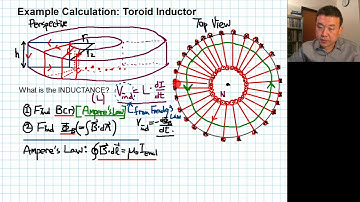 Example Calculation: Toroid Inductor
Perspective
Top View
h
r₁
r₂
N
What is the INDUCTANCE?
(L)
V_ind = L · dI/dt
① Find B(r) [Ampere's Law]
from Faraday's Law
② Find Φ_B (= ∫B⃗·dA⃗)
V_ind = - dΦ_B/dt
Ampere's Law: ∮B⃗·dl⃗ = μ₀ I_encl